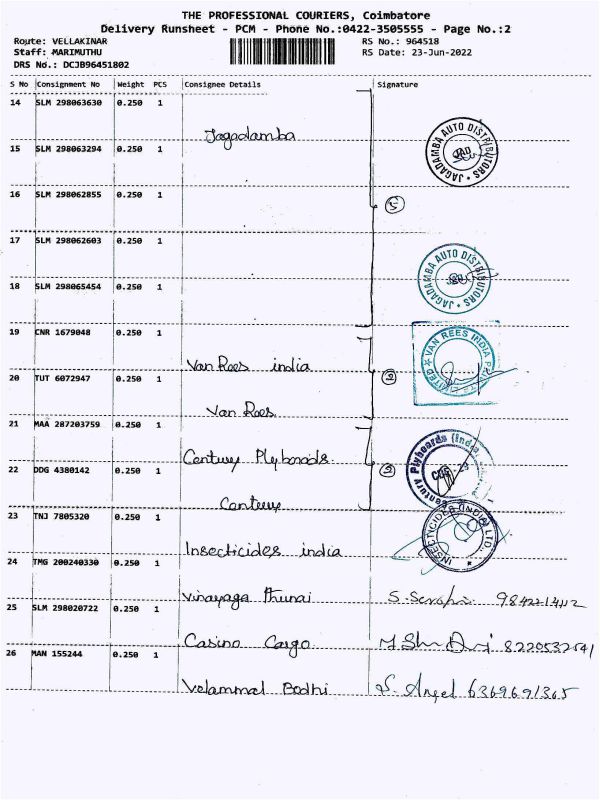 THE PROFESSIONAL COURIERS, Coimbatore
Delivery Runsheet - PCM - Phone No.:0422-3505555 - Page No.:2
Route: VELLAKINAR
Staff: MARIMUTHU
DRS No.: DCJB96451802
RS No.: 964518
RS Date: 23-Jun-2022
S No Consignment No Weight PCS Consignee Details Signature
14 SLM 298063630 0.250 1
Jagadamba
JAGADAMBA AUTO DISTRIBUTORS JAD
15 SLM 298063294 0.250 1
16 SLM 298062855 0.250 1
5
17 SLM 298062603 0.250 1
18 SLM 298065454 0.250 1
JAGADAMBA AUTO DISTRIBUTORS
19 CNR 1679048 0.250 1
Van Rees india
VAN REES INDIA
20 TUT 6072947 0.250 1
Van Rees
21 MAA 287203759 0.250 1
Century Plyboards
Century Plyboards (India)
22 DDG 4380142 0.250 1
Century
23 TNJ 7805320 0.250 1
Insecticides india
INSECTICIDES (INDIA) LTD.
24 TMG 200240330 0.250 1
Vinayaga
25 SLM 298020722 0.250 1
Casino Cargo
26 MAN 155244 0.250 1
Velammal Bodhi S. Angel 6369691365